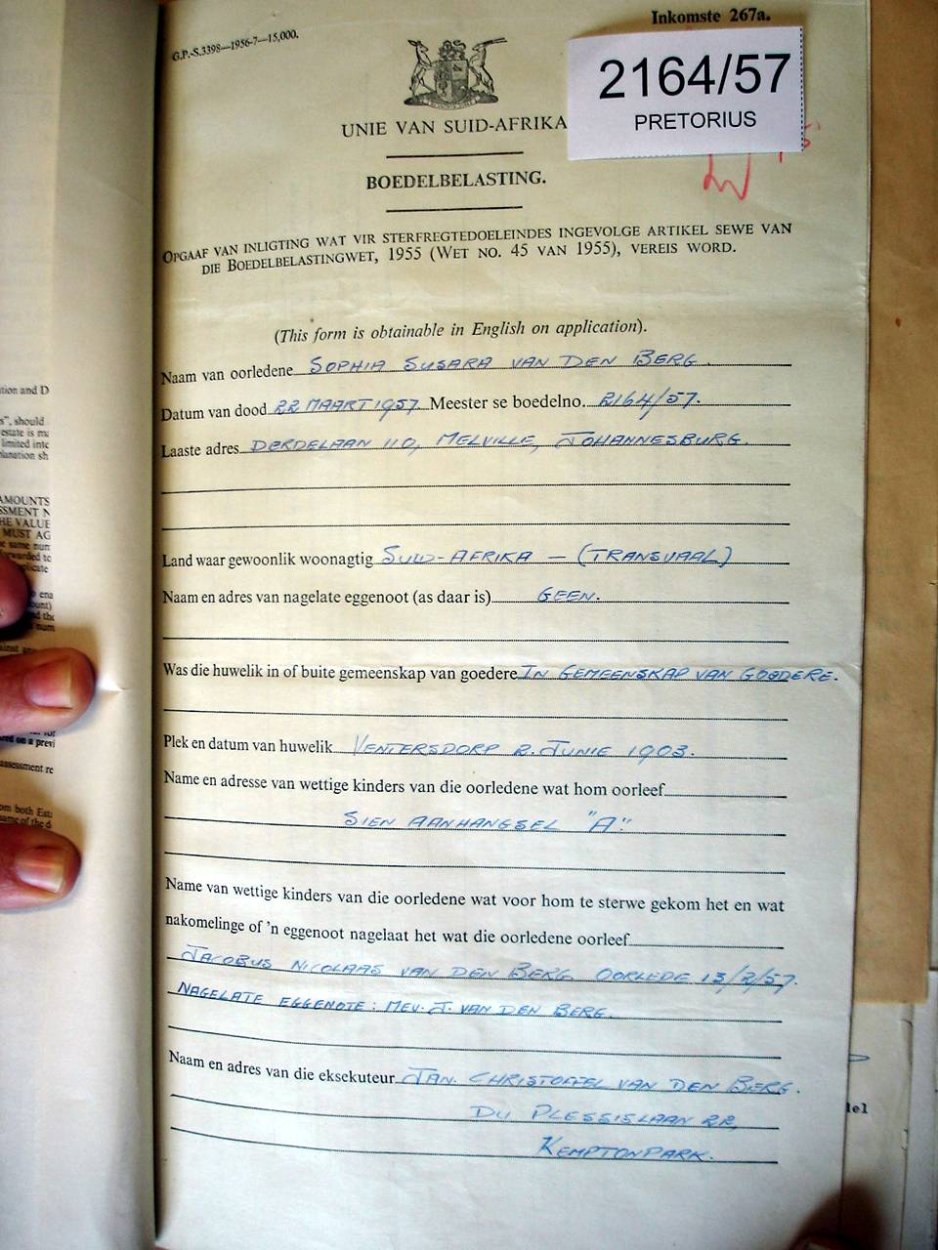 Inkomste 267a.
G.P.-S.3398—1956-7—15,000.
2164/57
PRETORIUS
UNIE VAN SUID-AFRIKA
BOEDELBELASTING.
OPGAAF VAN INLIGTING WAT VIR STERFREGTEDOELEINDES INGEVOLGE ARTIKEL SEWE VAN
DIE BOEDELBELASTINGWET, 1955 (WET NO. 45 VAN 1955), VEREIS WORD.
(This form is obtainable in English on application).
Naam van oorledene SOPHIA SUSARA VAN DEN BERG.
Datum van dood 22 MAART 1957 Meester se boedelno. 2164/57.
Laaste adres DERDELAAN 110, MELVILLE, JOHANNESBURG.
Land waar gewoonlik woonagtig SUID-AFRIKA — (TRANSVAAL)
Naam en adres van nagelate eggenoot (as daar is) GEEN.
Was die huwelik in of buite gemeenskap van goedere IN GEMEENSKAP VAN GOEDERE.
Plek en datum van huwelik VENTERSDORP 2. JUNIE 1903.
Name en adresse van wettige kinders van die oorledene wat hom oorleef
SIEN AANHANGSEL "A".
Name van wettige kinders van die oorledene wat voor hom te sterwe gekom het en wat
nakomelinge of 'n eggenoot nagelaat het wat die oorledene oorleef
JACOBUS NICOLAAS VAN DEN BERG OORLEDE 13/2/57.
NAGELATE EGGENOTE: MEV. J. VAN DEN BERG.
Naam en adres van die eksekuteur JAN. CHRISTOFFEL VAN DEN BERG.
DU PLESSISLAAN 22,
KEMPTONPARK.